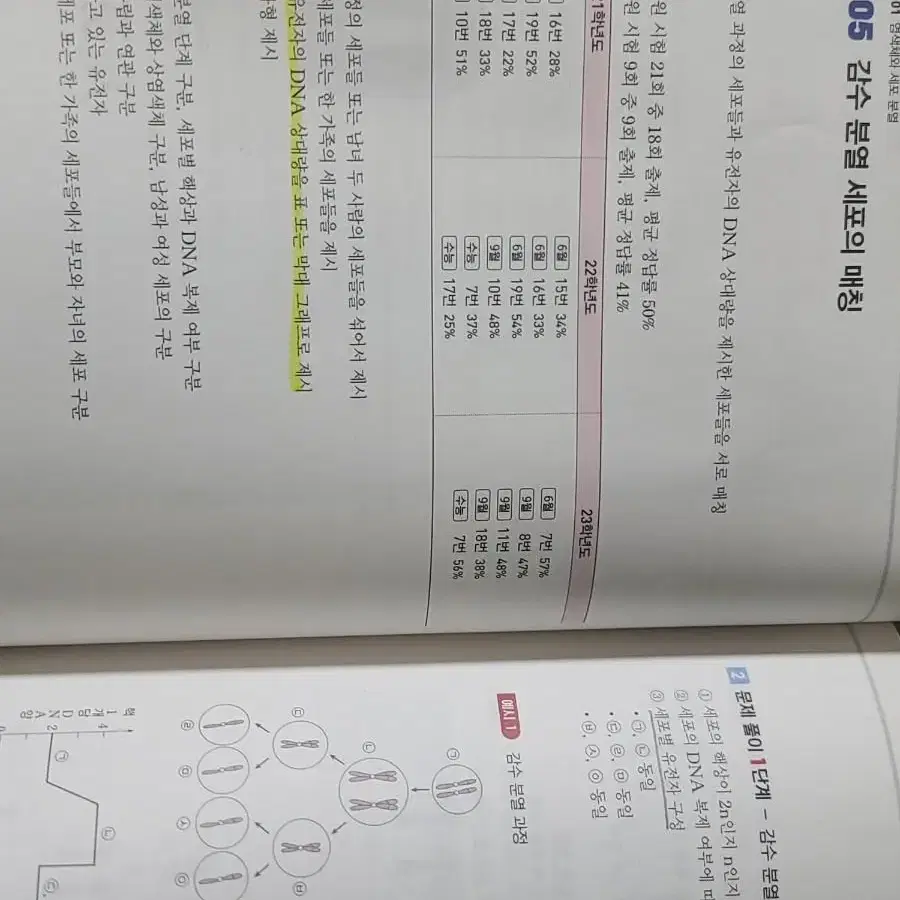 01 염색체와 세포 분열
05 감수 분열 세포의 매칭
열 과정의 세포들과 유전자의 DNA 상대량을 제시한 세포들을 서로 매칭
원 시험 21회 중 18회 출제, 평균 정답률 50%
원 시험 9회 중 9회 출제, 평균 정답률 41%
21학년도 22학년도 23학년도
16번 28%
19번 52%
17번 22%
18번 33%
10번 51%
6월 15번 34%
6월 16번 33%
6월 19번 54%
9월 10번 48%
수능 7번 37%
수능 17번 25%
6월 7번 57%
9월 8번 47%
9월 11번 48%
9월 18번 38%
수능 7번 56%
정의 세포들 또는 남녀 두 사람의 세포들을 섞어서 제시
세포들 또는 한 가족의 세포들을 제시
유전자의 DNA 상대량을 표 또는 막대 그래프로 제시
형 제시
분열 단계 구분, 세포별 핵상과 DNA 복제 여부 구분
염색체와 상염색체 구분, 남성과 여성 세포의 구분
람과 연관 구분
고 있는 유전자
포 또는 한 가족의 세포들에서 부모와 자녀의 세포 구분
2 문제 풀이 1단계 - 감수 분열
① 세포의 핵상이 2n인지 n인지
② 세포의 DNA 복제 여부에 따
③ 세포별 유전자 구성
• ㉠, ㉡ 동일
• ㉢, ㉣, ㉤ 동일
• ㉥, ㉦, ㉧ 동일
예시 1 감수 분열 과정
㉠
㉡
㉢ ㉥
㉣ ㉤ ㉦ ㉧
핵 1개당 DNA양
4
2
0
㉠
㉡
㉢,